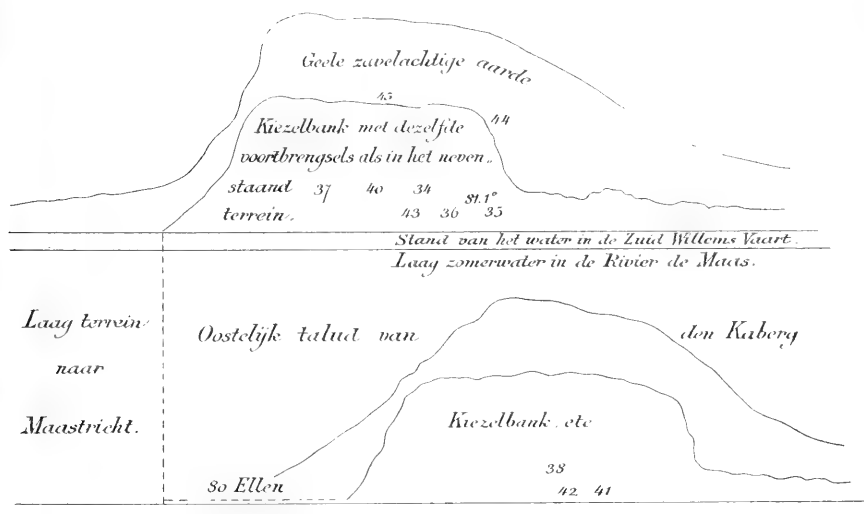 Geele zavelachtige aarde
45
44
Kiezelbank met dezelfde
voortbrengsels als in het neven„
staand 37 40 34 St. 1°
terrein. 43 36 35
Stand van het water in de Zuid Willems Vaart.
Laag zomerwater in de Rivier de Maas.
Laag terrein
naar
Maastricht.
Oostelijk talud van den Kaberg
Kiezelbank, etc
38
42 41
80 Ellen